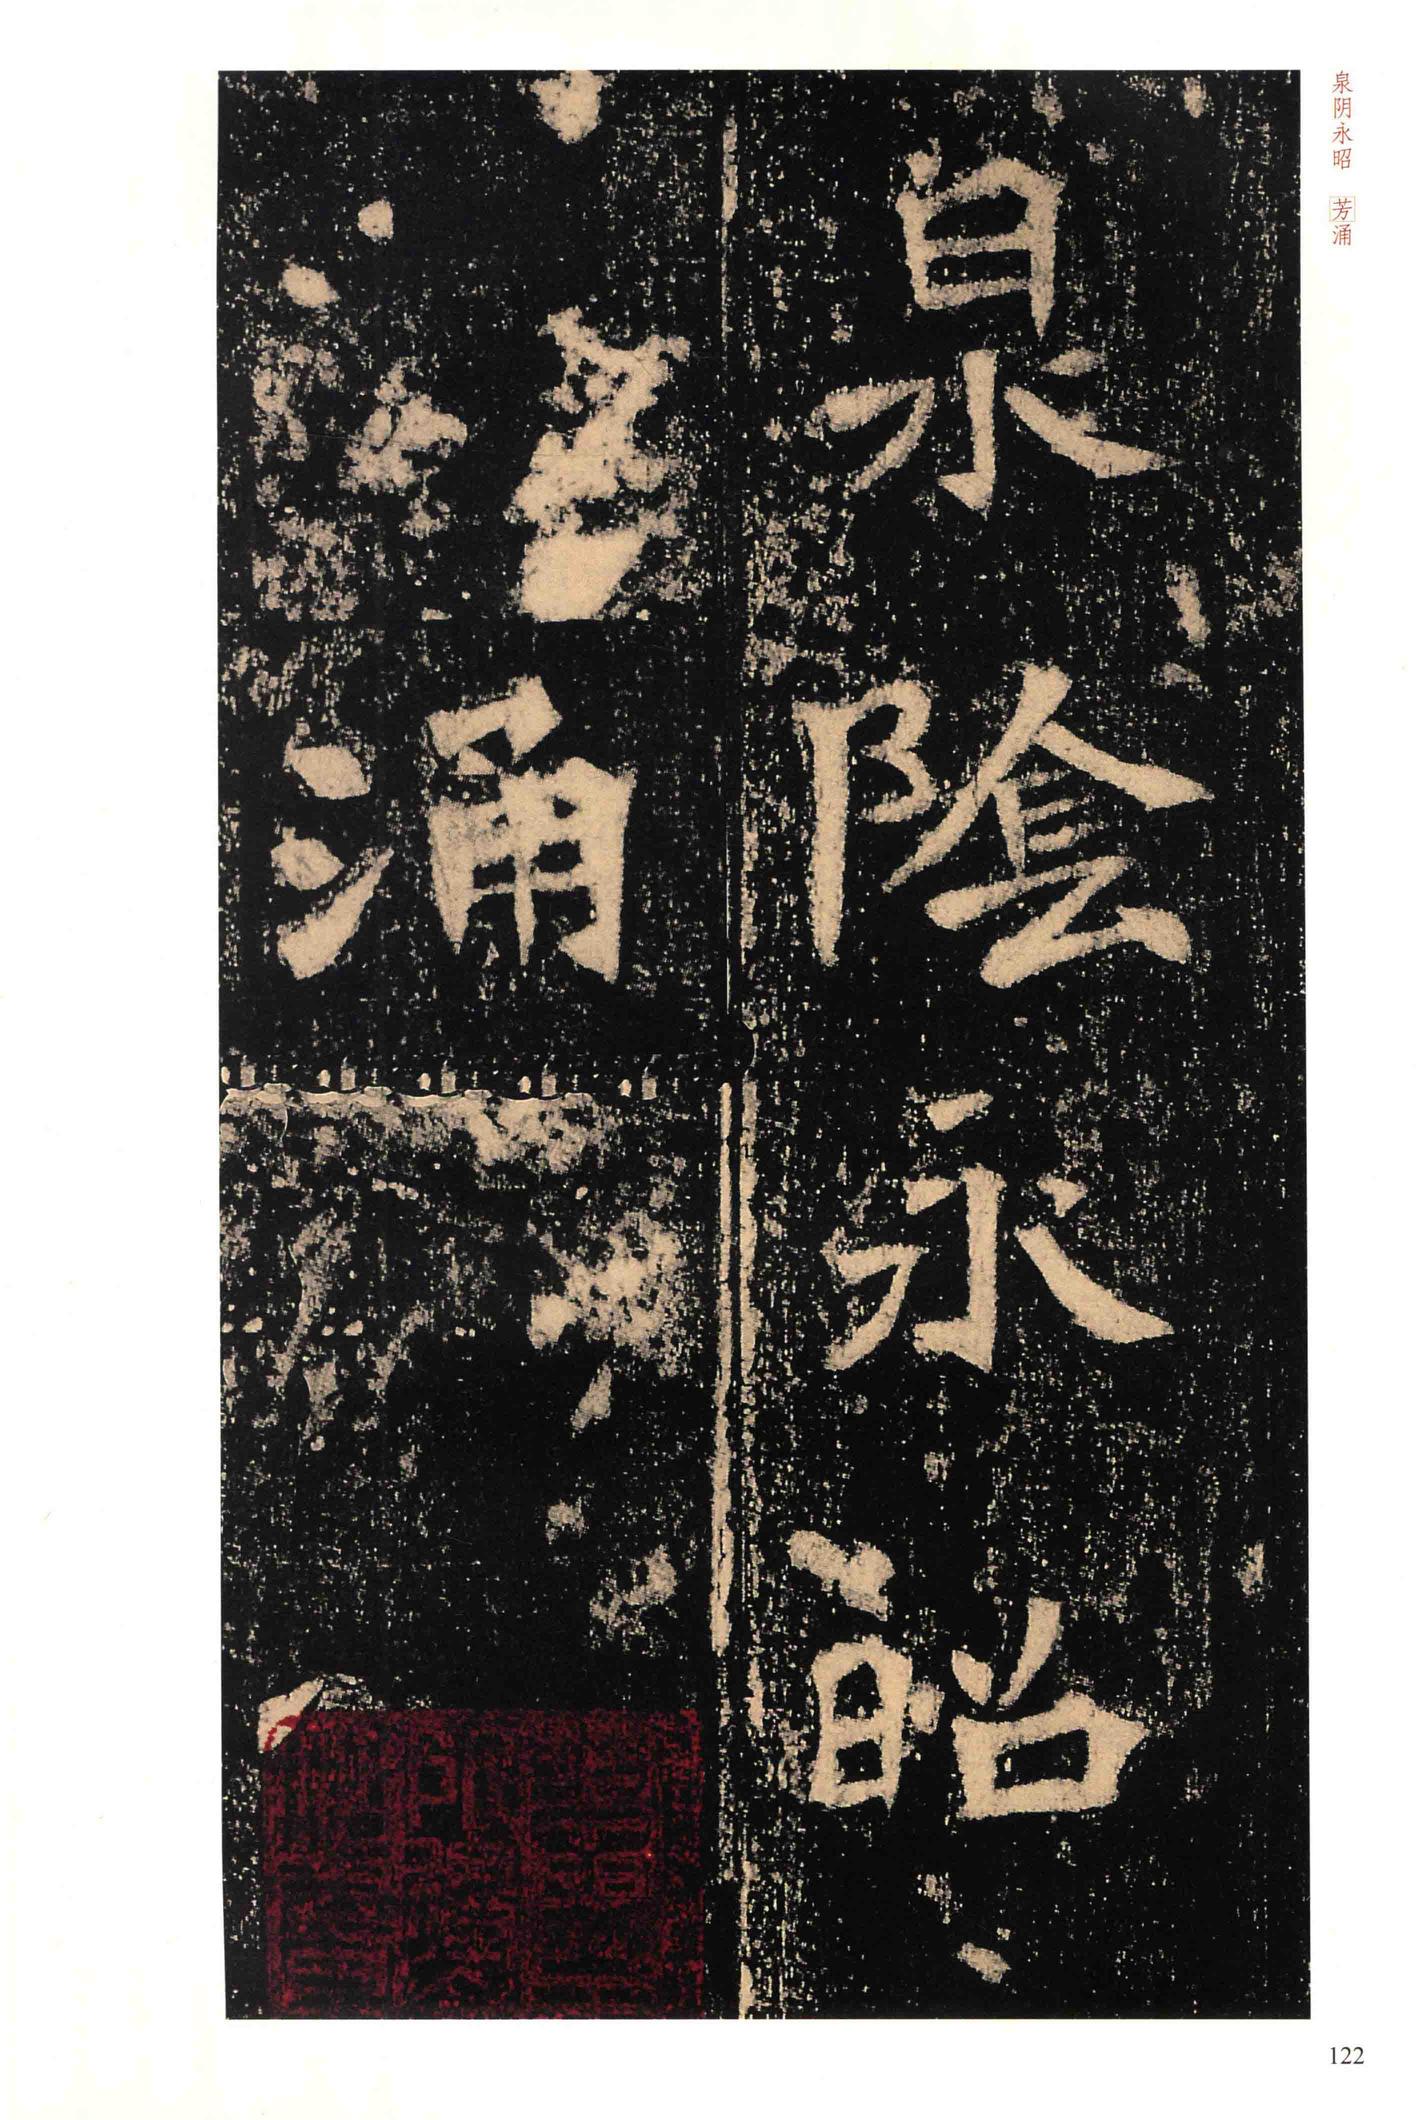 泉阴永昭 芳涌
泉陰永昭
涌
122